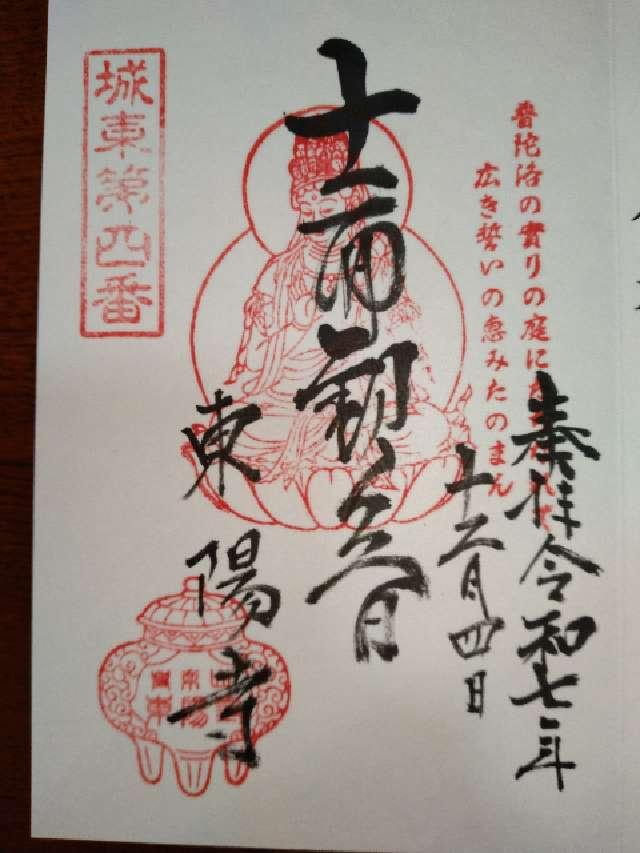 奉拝 令和七年
十二月四日
普陀洛の實りの庭に
広き誓いの恵みたのまん
十一面観世音
東陽寺
城東第四番